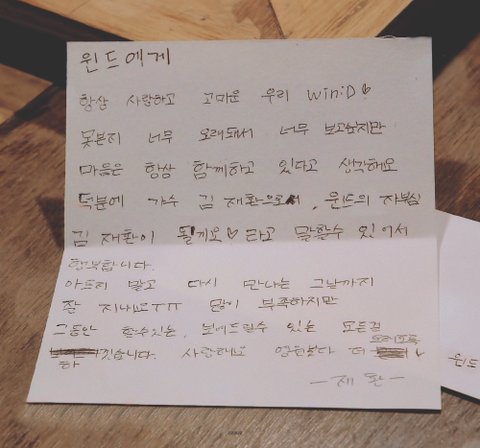 윈드에게
항상 사랑하고 고마운 우리 WIN:D♡
못본지 너무 오래돼서 너무 보고싶지만
마음은 항상 함께하고 있다고 생각해요
덕분에 가수 김재환으로서, 윈드의 자부심
김재환이 될게요♡ 라고 말할수 있어서
행복합니다.
아프지 말고 다시 만나는 그날까지
잘 지내요ㅠㅠ 많이 부족하지만
그동안 할수있는, 보여드릴수 있는 모든걸
하겠습니다. 사랑해요 영원보다 더 오래도록
-재환-
윈드